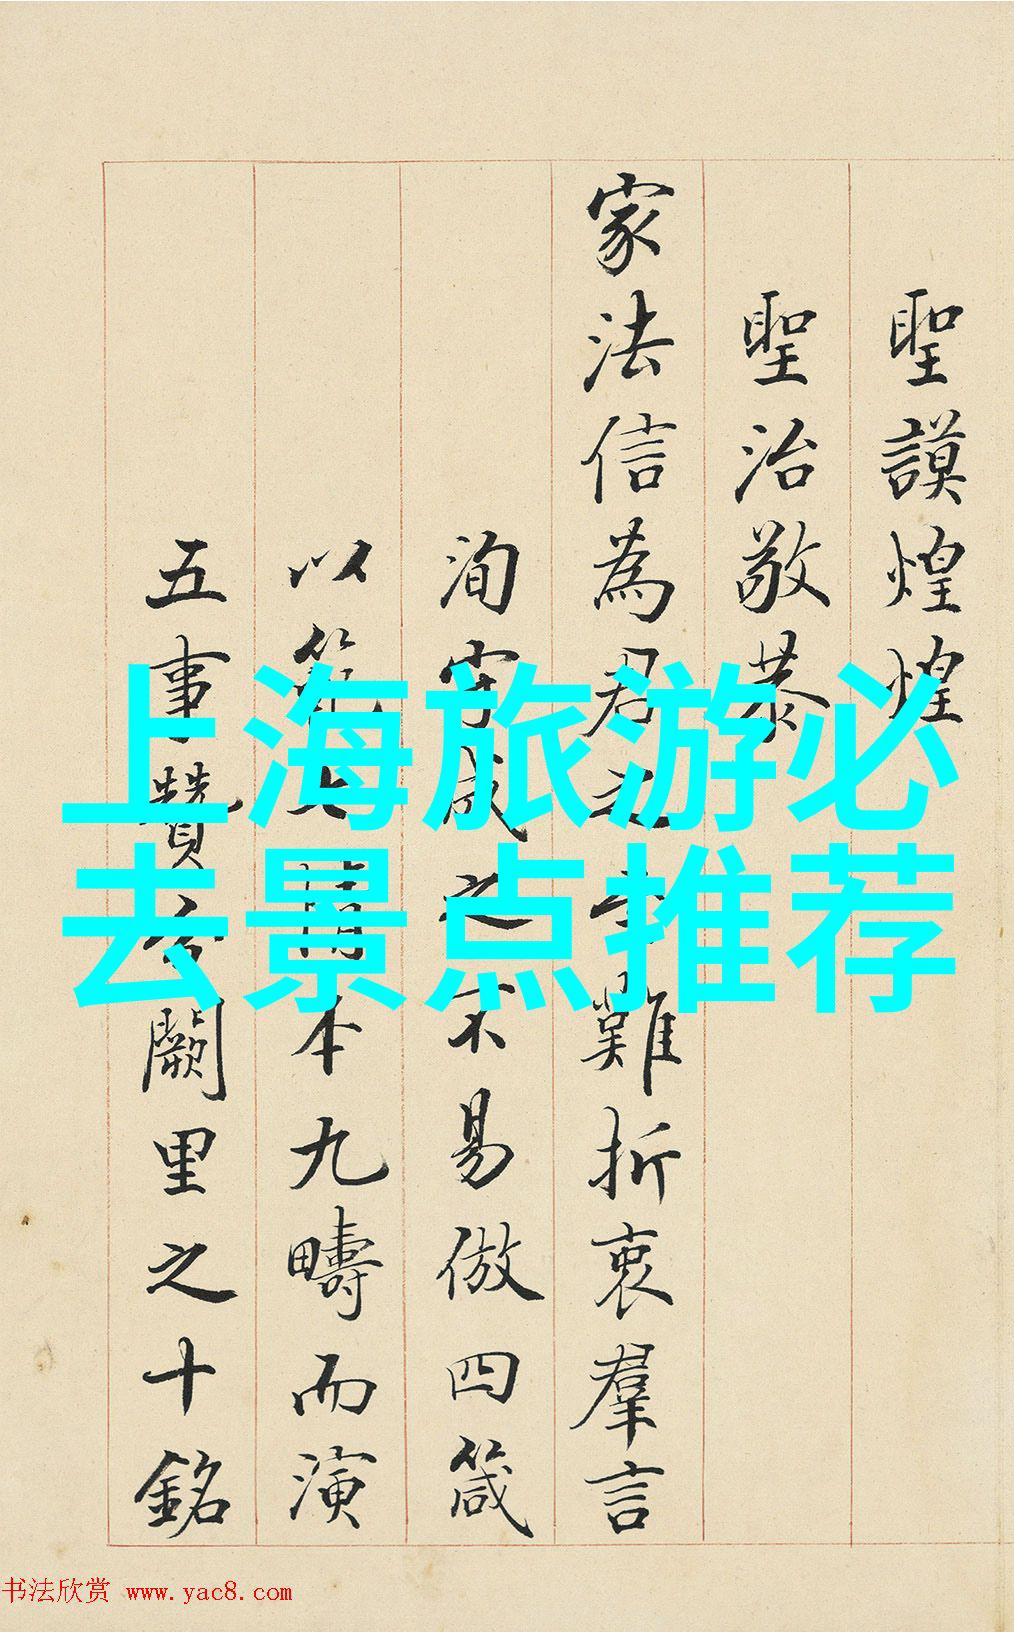 聖謨煌煌
聖治敬恭
家法信為君之 難折衷羣言
洵守成之不易倣四箴
以 本九疇而演
五事贊 闕里之十銘
上海旅游必
去景点推荐
书法欣赏 www.yac8.com